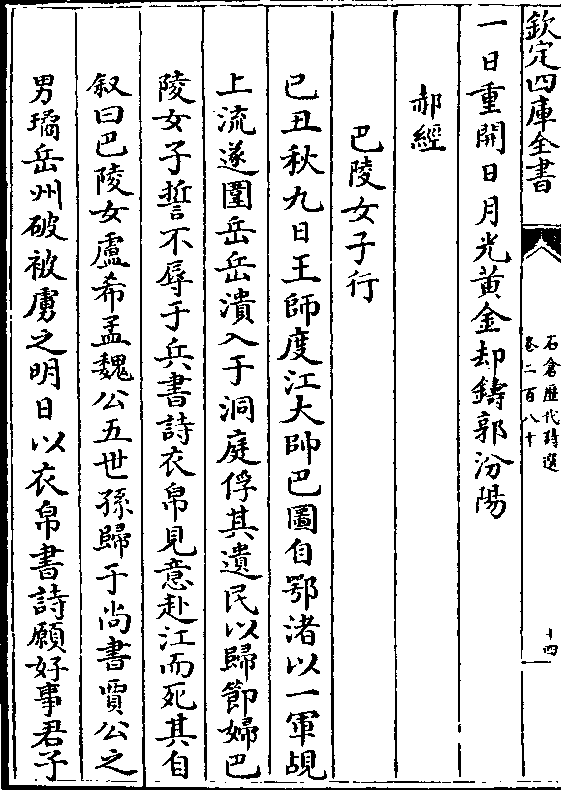 欽定四庫全書
石倉歷代詩選
卷二百八十
十四
一日重開日月光黃金却鑄郭汾陽
郝經
巴陵女子行
己丑秋九日王師度江大帥巴圖自鄂渚以一軍覘
上流遂圍岳岳潰入于洞庭俘其遺民以歸節婦巴
陵女子誓不辱于兵書詩衣帛見意赴江而死其自
叙曰巴陵女盧希孟魏公五世孫歸于尚書賈公之
男璚岳州破被虜之明日以衣帛書詩願好事君子